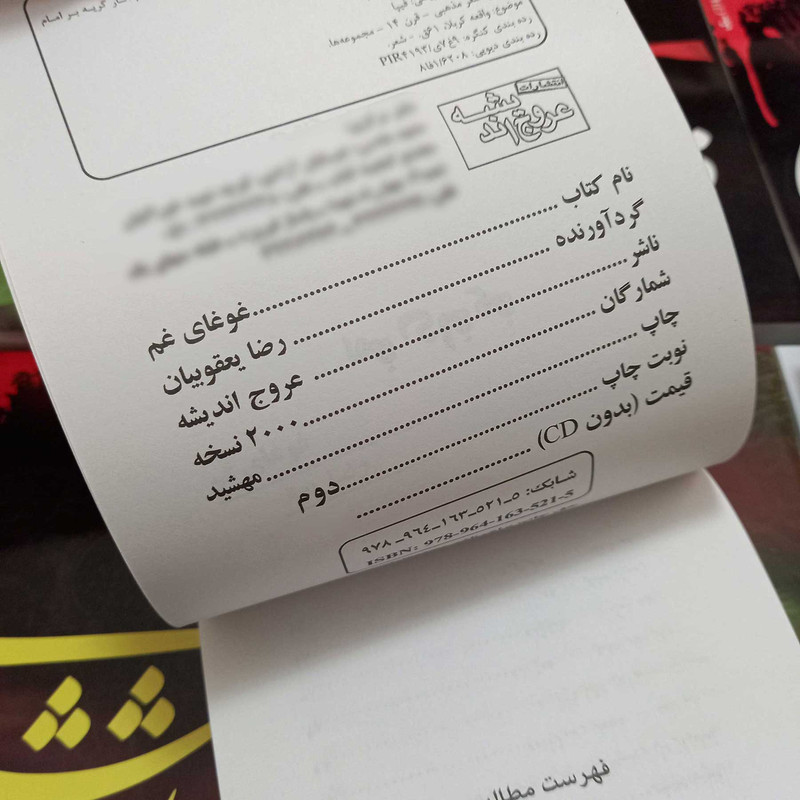 کار گریه بر امام
موضوع: واقعه کربلا، ۶۱ق. - شعر.
شعر مذهبی - قرن ۱۴ - مجموعه‌ها
رده بندی کنگره: PIR۴۱۹۳/ی۷غ۹
رده بندی دیویی: ۸فا۱/۶۲۰۸
انتشارات
عروج اندیشه
نام کتاب ........ غوغای غم
گردآورنده ........ رضا یعقوبیان
ناشر ........ عروج اندیشه
شمارگان ........ ۲۰۰۰ نسخه
چاپ ........ مهشید
نوبت چاپ ........ دوم
قیمت (بدون CD) ........
شابک: ۵-۵۲۱-۱۶۳-۹۶۴-۹۷۸
ISBN: 978-964-163-521-5
فهرست